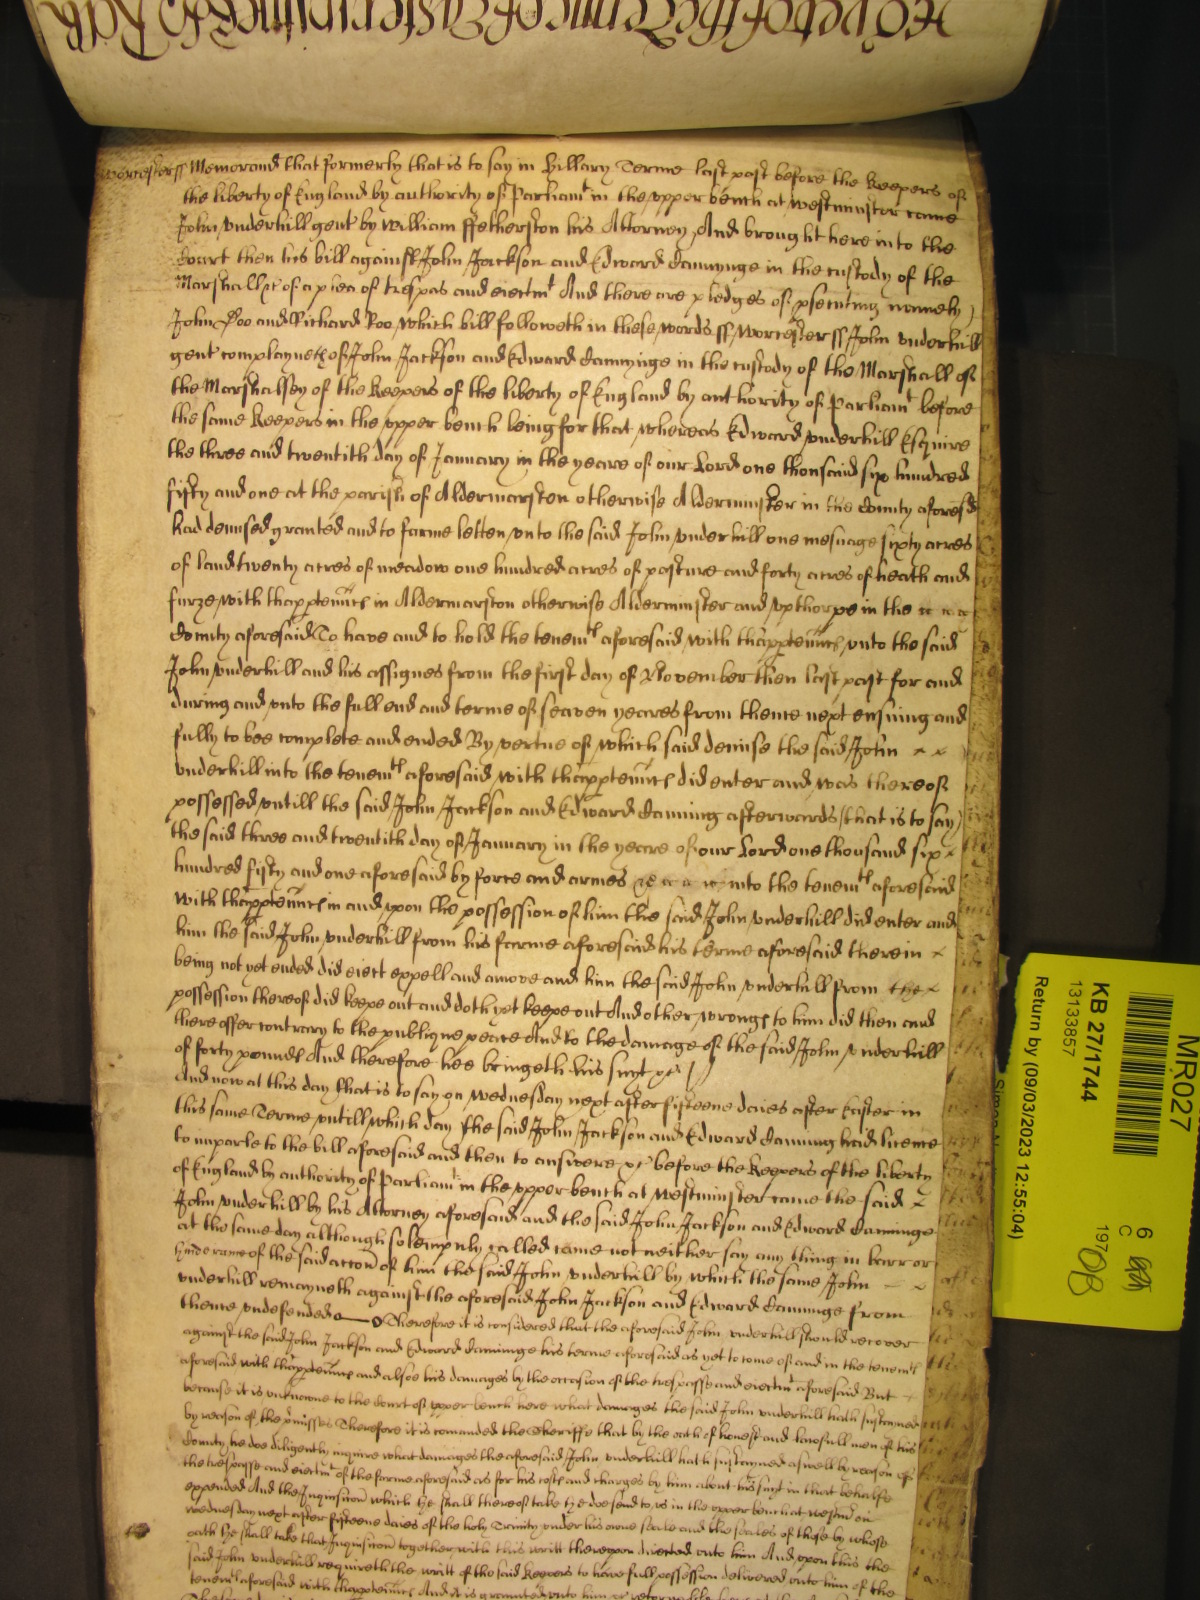 Worcesterss Memorand that formerly that is to say in Hillary Terme last past before the Keepers of
the liberty of England by authority of Parliamt in the upper bench at Westminster came
John Underhill gent by William ffetherston his Attorney And brought here into the
Court then his bill against John Jackson and Edward Cannynge in the custody of the
Marshall &c of a plea of trespas and eiectmt And there are pledges of psecuting namely
John Doo and Richard Roo which bill followeth in these words ss Worcester ss John Underhill
gent complayneth of John Jackson and Edward Cannynge in the custody of the Marshall of
the Marshallsey of the Keepers of the liberty of England by authority of Parliamt before
the same Keepers in the upper bench being for that whereas Edward Underhill Esquire
the three and twentith day of January in the yeare of our Lord one thousaid six hundred
fifty and one at the parish of Aldermarsten otherwise Alderminster in the County aforesd
had demised granted and to farme letten unto the said John Underhill one mesuage sixty acres
of land twenty acres of meadow one hundred acres of pasture and forty acres of heath and
furze with thapptennces in Aldermarston otherwise Alderminster and Upthorpe in the
County aforesaid To have and to hold the tenemts aforesaid with thapptennces unto the said
John Underhill and his assignes from the first day of November then last past for and
during and unto the full end and terme of seaven yeares from thence next ensuing and
fully to bee complete and ended By vertue of which said demise the said John
Underhill into the tenemts aforesaid with thapptennces did enter and was thereof
possessed untill the said John Jackson and Edward Canning afterwards (that is to say)
the said three and twentith day of January in the yeare of our Lord one thousand six
hundred fifty and one aforesaid by force and armes &c into the tenemts aforesaid
with thapptennces in and upon the possession of him the said John Underhill did enter and
him the said John Underhill from his farme aforesaid his terme aforesaid therein
being not yet ended did eiect expell and amove and him the said John Underhill from the
possession thereof did keepe out and doth yet keepe out And other wronges to him did then and
there offer contrary to the publique peace And to the damage of the said John Underhill
of forty pounds And therefore hee bringeth his suyt &c
And now at this day that is to say on Wednesday next after fifteene daies after Easter in
this same Terme untill which day the said John Jackson and Edward Canning had licence
to imparle to the bill aforesaid and then to answere &c before the Keepers of the liberty
of England by authority of Parliamt in the upper bench at Westminster came the said
John Underhill by his Attorney aforesaid and the said John Jackson and Edward Canninge
at the same day although solempnly called came not neither say any thing in barr or
hinderance of the said accon of him the said John Underhill by which the same John
Underhill remayneth against the aforesaid John Jackson and Edward Canninge from
thence undefended Therefore it is considered that the aforesaid John Underhill should recover
against the said John Jackson and Edward Canninge his terme aforesaid as yet to come of and in the tenemts
aforesaid with thapptennces and alsoe his damages by the occasion of the trespasse and eiectmt aforesaid But
because it is unknowne to the Court of upper bench here what damages the said John Underhill hath susteyned
by reason of the pmisses Therefore it is comanded the Sheriffe that by the oath of honest and lawfull men of his
County he doe diligently inquire what damages the aforesaid John Underhill hath susteyned aswell by reason of
the trespasse and eiectmt of the farme aforesaid as for his costs and charges by him about his suyt in that behalfe
expended And the Inquisicon which he shall thereof take he doe send to us in the upper bench at Westmr on
Wednesday next after fifteene daies of the holy Trinity under his owne seale and the seales of those by whose
oath he shall take that Inquisicon together with this writt thereupon directed unto him And upon this the
said John Underhill requireth the writt of the said Keepers to have full possession delivered unto him of the
tenemts aforesaid with thapptennces And it is graunted unto him
MR027
KB 27/1744
13133857
Return by (09/03/2023 12:55:04)
6
C
197